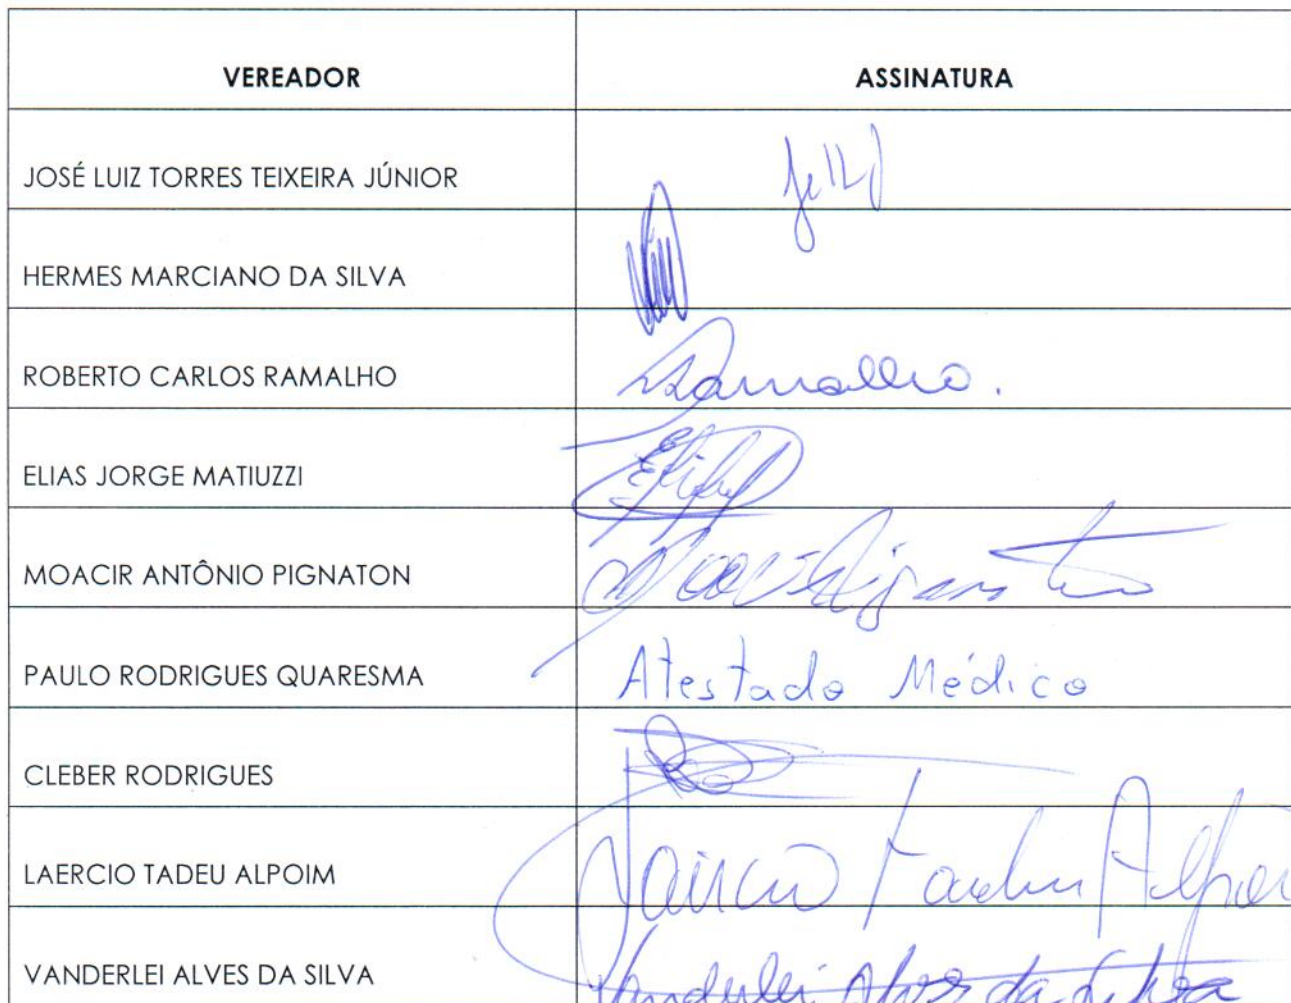 VEREADOR ASSINATURA
JOSÉ LUIZ TORRES TEIXEIRA JÚNIOR
HERMES MARCIANO DA SILVA
ROBERTO CARLOS RAMALHO Ramalho.
ELIAS JORGE MATIUZZI
MOACIR ANTÔNIO PIGNATON
PAULO RODRIGUES QUARESMA Atestado Médico
CLEBER RODRIGUES
LAERCIO TADEU ALPOIM Laércio Tadeu Alpoi
VANDERLEI ALVES DA SILVA Vanderlei Alves da Silva